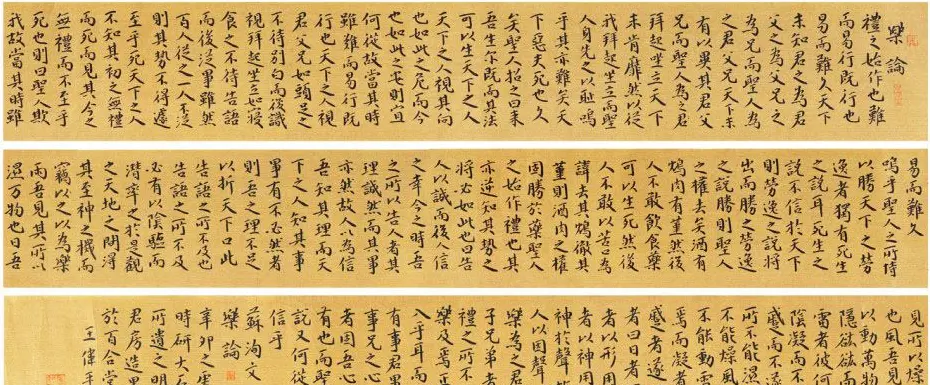 樂論
禮之始作也難
而易行既行也
易而難久天下
未知君之為君
父之為父兄之
為兄而聖人為
之君父兄天下未
有以異其君父
兄而聖人為之
拜起坐立天下
未肯靡然以從
我拜起坐立而聖
人身先之以恥嗚
乎其亦難矣天
下惡夫死也久
矣聖人招之曰来
吾生尔既而其法
可以生天下之人
天下之人視其向
也如此之危而今
也如此之安則宜
何從故當其時
雖難而易行既
行也天下之人視
君父兄如頭足之
不待別白而後識
視拜起坐立如寢
食之不待告語
而後從事雖然
百人從之一人不從
則其勢不得遽
至乎死天下之人
不知其初之無禮
而死而見其今之
無禮而不至乎
死也則曰聖人欺
我故當其時雖
易而難久
嗚乎聖人之所恃
以勝天下之勞
逸者獨有死生
之說耳死生之
說不信於天下
則勞逸之說將
出而勝之勞逸
之說勝則聖人
之權去矣酒有
鴆肉有堇然後
人不敢飲食藥
可以生死然後
人不敢以苦口為
諱去其鴆徹其
堇則酒肉之權
固勝於藥聖人
之始作禮也其
亦逆知其勢之
將必如此也曰告
人以誠而後人信
之幸今之時吾
之所以告人者其
理誠然而其事
亦然故人以為信
吾知其理而天
下之人知其事
事有不必然者
則吾之理不足
以折天下口此
告語之所不及也
告語之所不及
必有以陰驅而
潛率之於是觀
之天地之間得
其至神之機而
竊之以為樂
雨吾見其所以
濕万物也日吾
見所以燥
也風吾見
以動萬
隱欬欬
雷者彼何
陰凝而不
蹙而不遂
所不能濕
不能燥風
不能動
焉而凝者
蹙者遂
者曰日者
者以形用
者以神用
神於聲
人以因聲
樂為君
子兄弟者
禮之所不
樂及焉正
入乎耳而
有事君
事兄之心
者固吾心
有也而聖
說又何從
信乎
蘇洵文
樂論
辛卯之
時研大石
所遺之明
君房造
於百合堂
王偉手